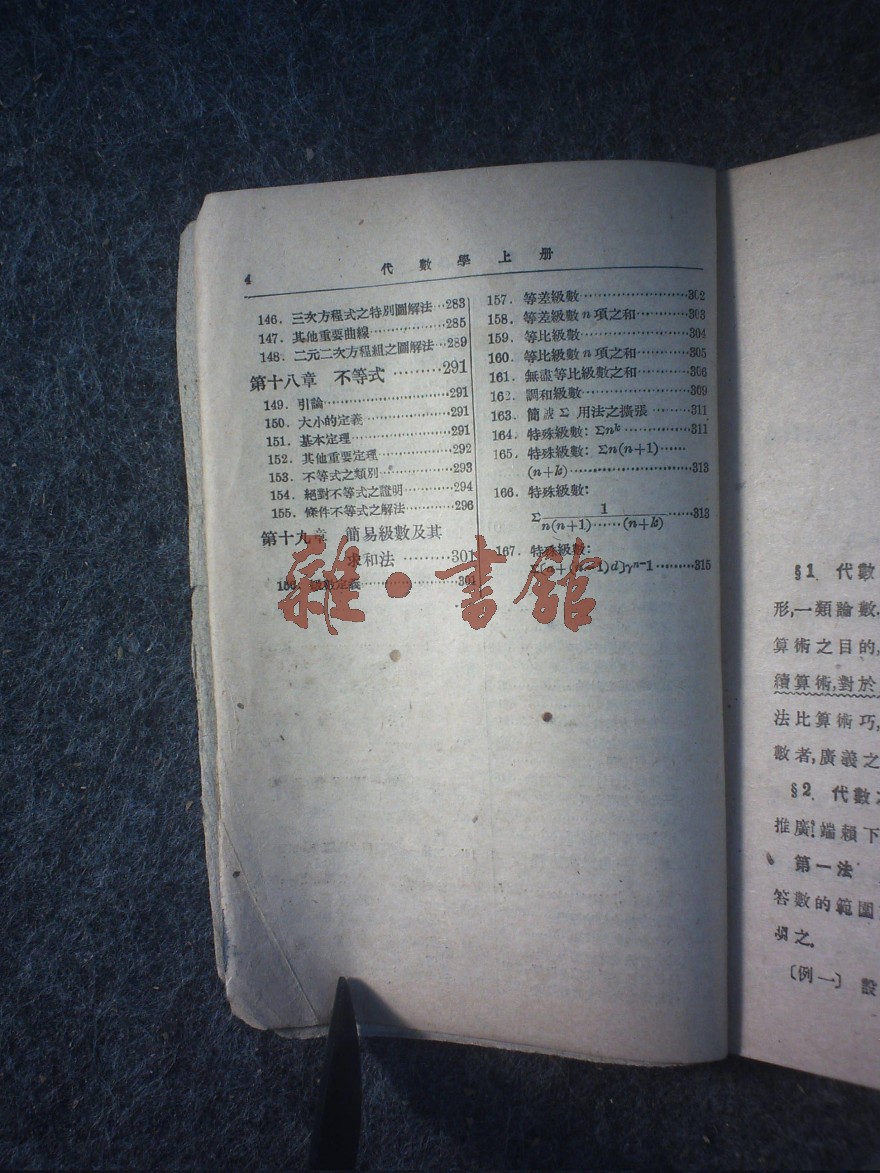 4
代數學上册
146. 三次方程式之特別圖解法…283
147. 其他重要曲線……………285
148. 二元二次方程組之圖解法…289
第十八章 不等式………291
149. 引論………………………291
150. 大小的定義………………291
151. 基本定理…………………291
152. 其他重要定理……………292
153. 不等式之類別……………293
154. 絕對不等式之證明………294
155. 條件不等式之解法………296
第十九章 簡易級數及其
求和法………301
156. 級數定義…………………301
157. 等差級數…………………302
158. 等差級數n項之和………303
159. 等比級數…………………304
160. 等比級數n項之和………305
161. 無盡等比級數之和………306
162. 調和級數…………………309
163. 簡或Σ用法之擴張………311
164. 特殊級數: Σnᵏ……………311
165. 特殊級數: Σn(n+1)……
(n+k)………………………313
166. 特殊級數:
Σ 1/n(n+1)……(n+k) ……313
167. 特殊級數:
–1)d〕γⁿ–1………315
雜·書館
§1. 代數
形,一類論數.
算術之目的,
續算術,對於
法比算術巧,
數者,廣義之
§2. 代數
推廣,端賴下
第一法
答數的範圍
〔例一〕 設